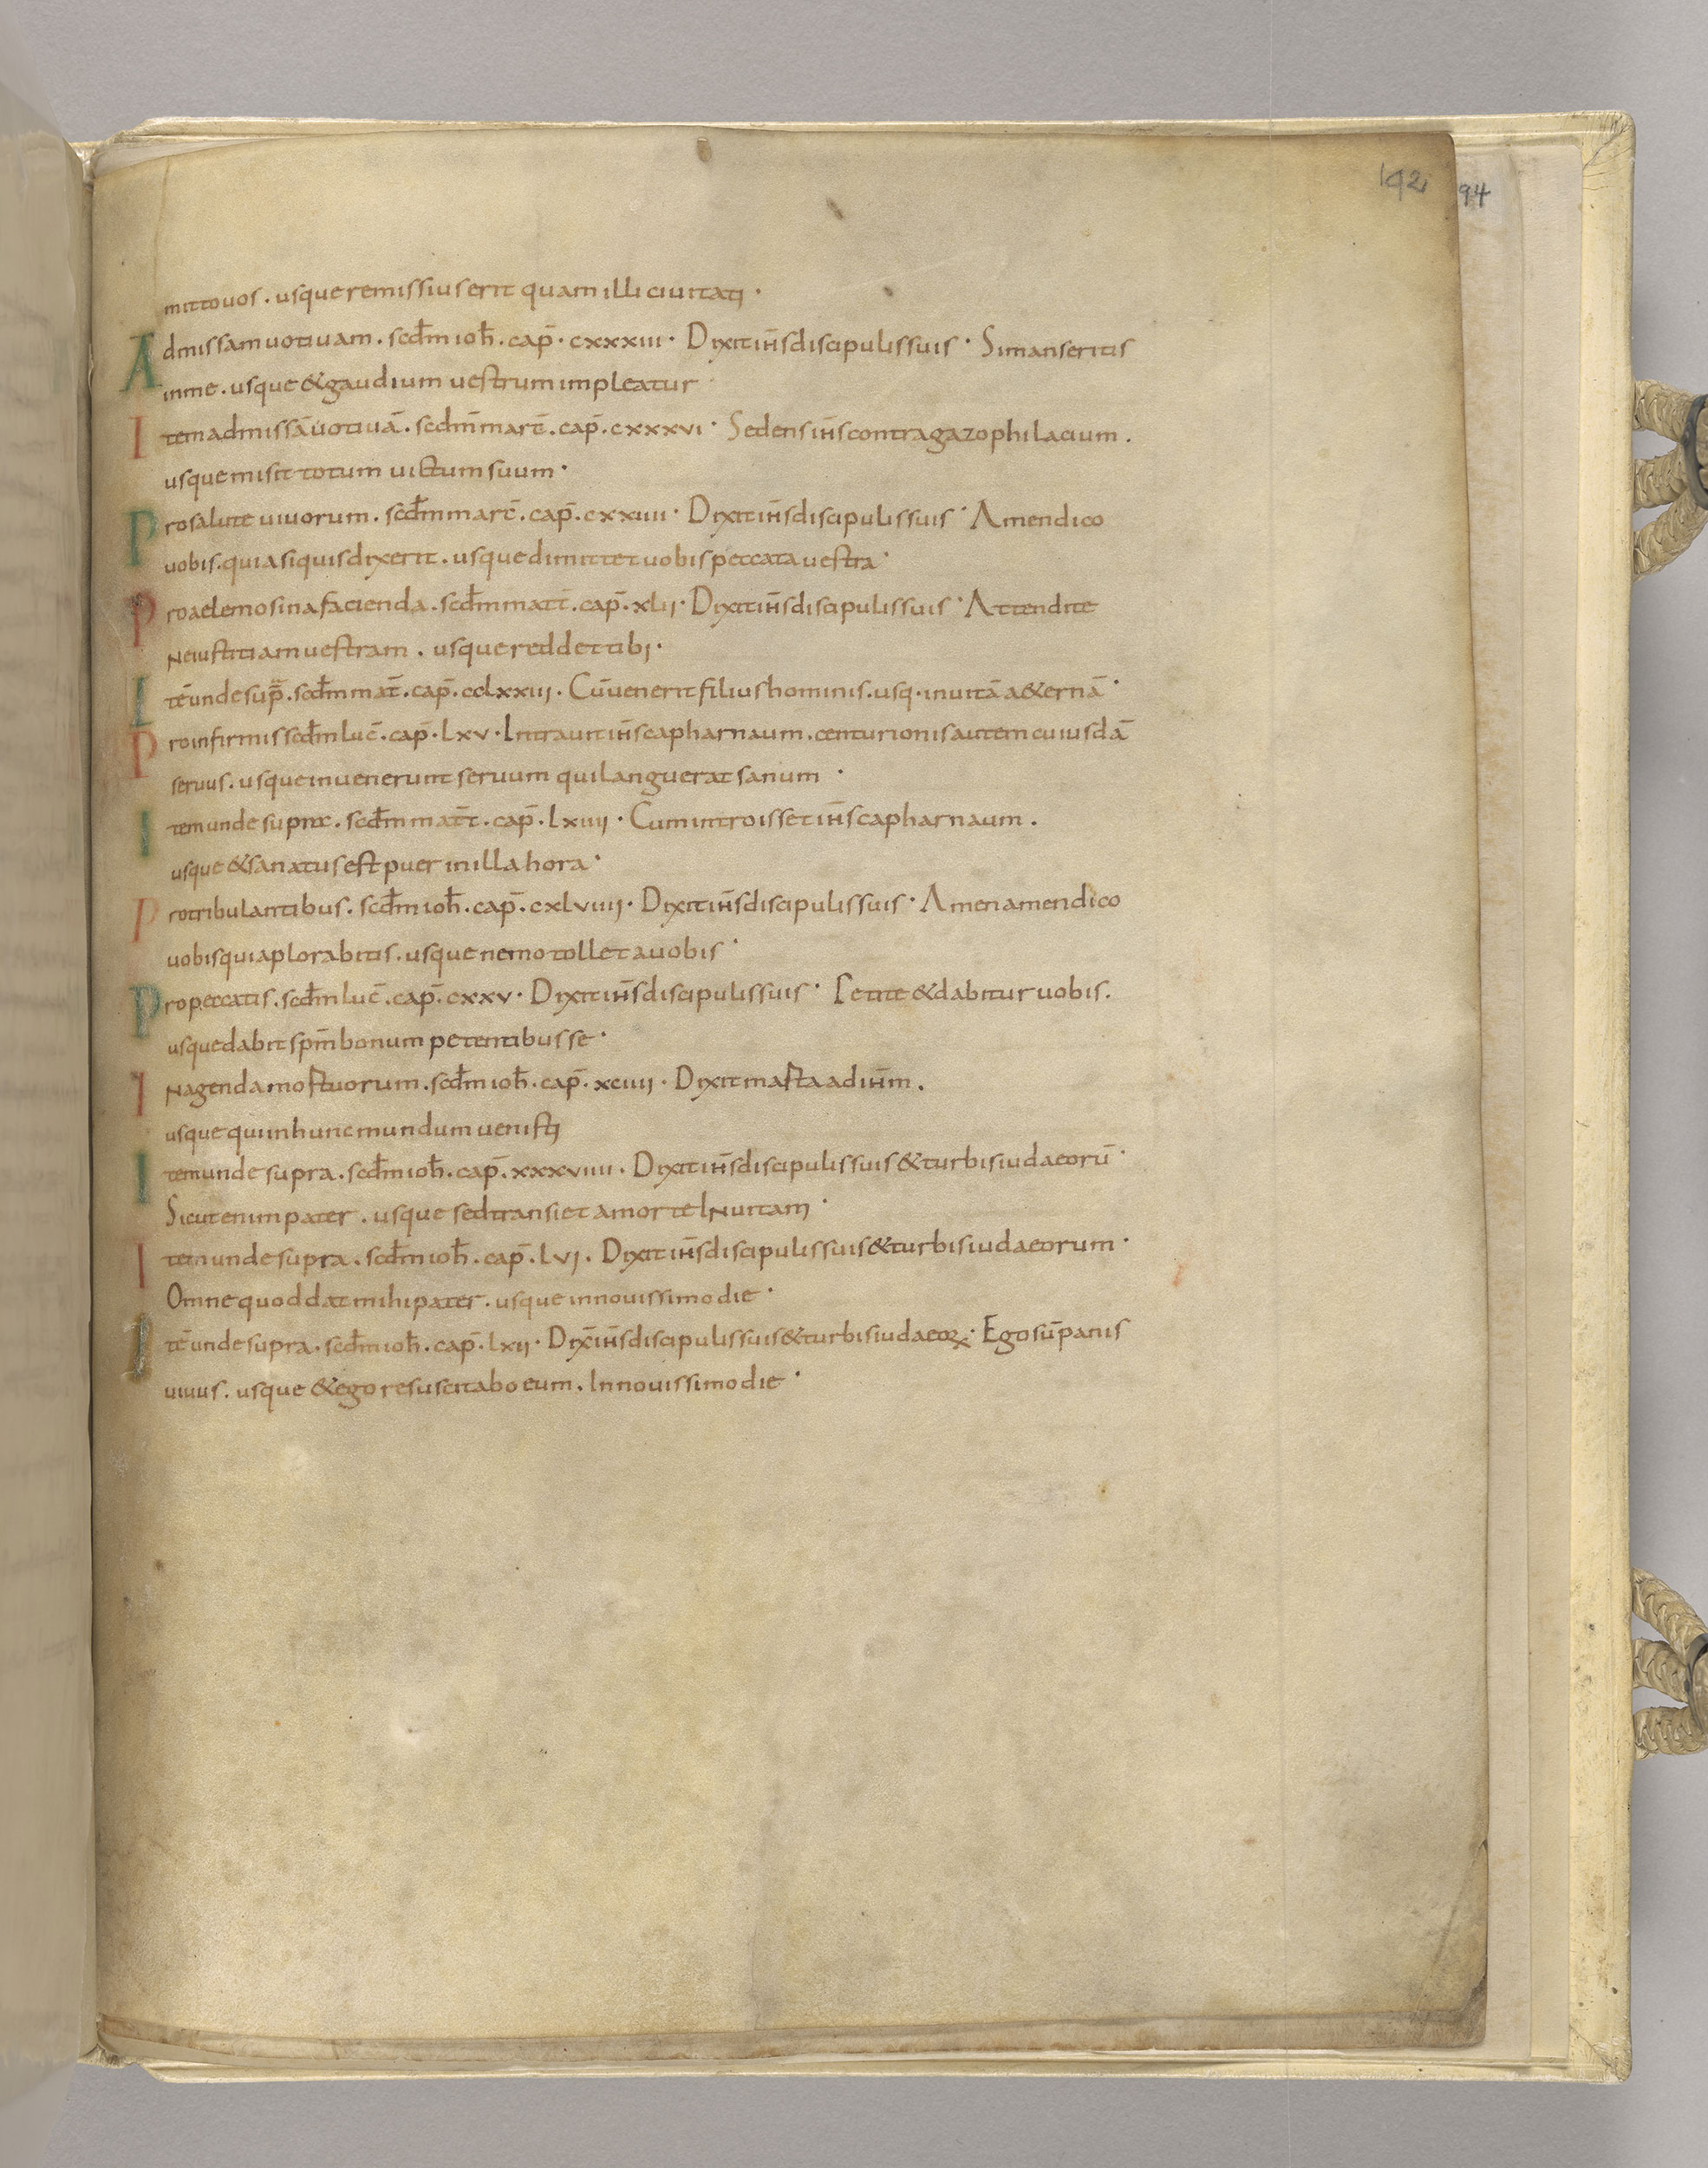 192 94
mitto uos . usque remissius erit quam illi ciuitati ·
Ad missam uotiuam . scdm ioh̄ . cap̄ · cxxxiii · Dixit ih̄s discipulis suis · Si manseritis
in me . usque & gaudium uestrum impleatur ·
Item ad missā uotiuā . scdm̄ marc̄ . cap̄ . cxxxvi · Sedens ih̄s contra gazophilacium .
usque misit totum uictum suum ·
Pro salute uiuorum . scdm̄ marc̄ . cap̄ . cxxiiii · Dixit ih̄s discipulis suis · Amen dico
uobis . quia si quis dixerit . usque dimittet uobis peccata uestra ·
Pro aelemosina facienda . scdm̄ matt̄ . cap̄ . xlii · Dixit ih̄s discipulis suis · Attendite
ne iustitiam uestram . usque reddet tibi ·
Itē unde sup̄ . scdm̄ mat̄ . cap̄ . cclxxiii . Cū uenerit filius hominis . usq · in uitā a&ernā ·
Pro infirmis scdm̄ luc̄ . cap̄ . lxv · Intrauit ih̄s capharnaum . centurionis autem cuiusdā
seruus . usque inuenerunt seruum qui languerat sanum ·
Item unde supra . scdm̄ matt̄ . cap̄ . lxiiii · Cum introisset ih̄s capharnaum .
usque & sanatus est puer in illa hora ·
Pro tribulantibus . scdm̄ ioh̄ . cap̄ . cxlviiii · Dixit ih̄s discipulis suis · Amen amen dico
uobis quia plorabitis . usque nemo tollet a uobis ·
Pro peccatis . scdm̄ luc̄ . cap̄ . cxxv · Dixit ih̄s discipulis suis · Petite & dabitur uobis .
usque dabit sp̄m bonum petentibus se ·
In agenda mortuorum . scdm̄ ioh̄ . cap̄ . xciiii · Dixit marta ad ih̄m .
usque qui in hunc mundum uenisti
Item unde supra . scdm̄ ioh̄ . cap̄ . xxxviiii . Dixit ih̄s discipulis suis & turbis iudaeorū ·
Sicut enim pater . usque sed transiet a morte In uitam ·
Item unde supra . scdm̄ ioh̄ . cap̄ . lvi . Dixit ih̄s discipulis suis & turbis iudaeorum ·
Omne quod dat mihi pater . usque in nouissimo die ·
Itē unde supra . scdm̄ ioh̄ . cap̄ . lxii · Dix̄ ih̄s discipulis suis & turbis iudaeoꝝ · Ego sū panis
uiuus . usque & ego resuscitabo eum . In nouissimo die ·